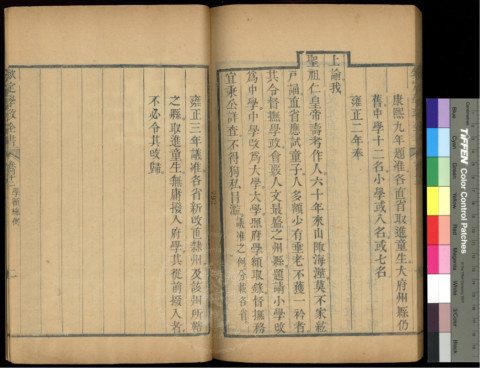 康熙九年題准各直省取進童生大府州縣仍
舊中學十二名小學或八名或七名
雍正二年奉
上諭我
聖祖仁皇帝壽考作人六十年來山陬海澨莫不家絃
戶誦直省應試童子人多額少有垂老不獲一衿者
其令督撫學政會覈人文最盛之州縣題請小學改
爲中學中學改爲大學大學照府學額取錄督撫務
宜秉公詳查不得狥私冒濫議准之例分載各省
雍正三年議准各省新改直隸州及該州所轄
之縣取進童生無庸撥入府學其從前撥入者
不必令其改歸
欽定學政全書
TIFFEN Color Control Patches
Blue
Cyan
Green
Yellow
Red
Magenta
White
3/Color
Black